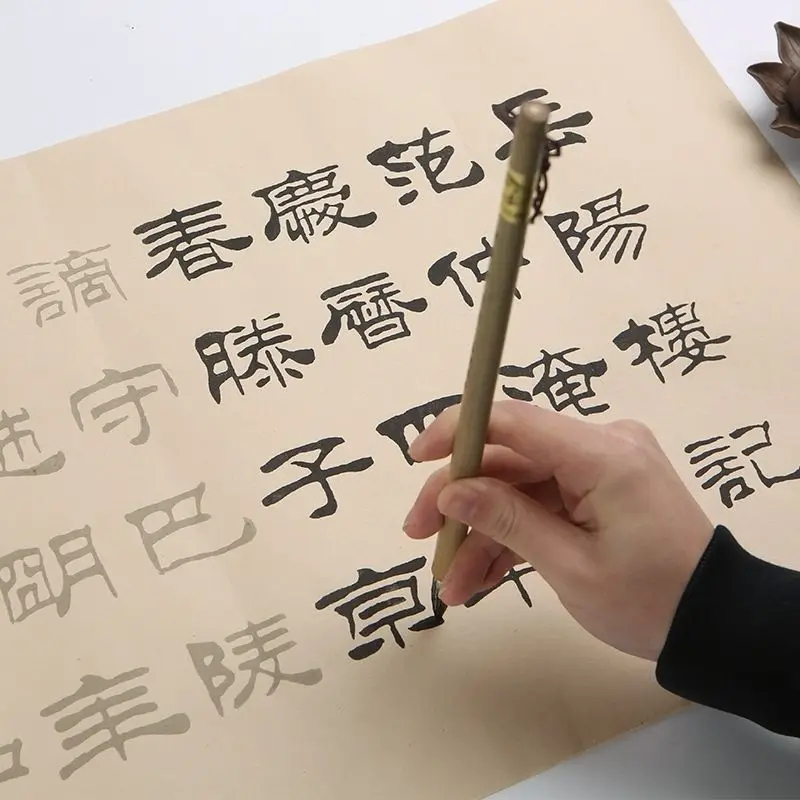 岳陽樓記
范仲淹
慶曆四年
春滕子京
謫守巴陵
越朙年